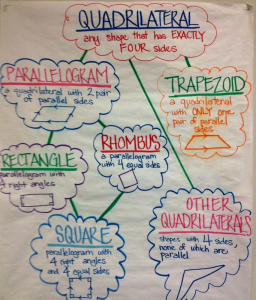 QUADRILATERAL
any shape that has EXACTLY
FOUR sides
PARALLELOGRAM
a quadrilateral with 2 pair
of parallel sides
TRAPEZOID
a quadrilateral
with ONLY one
pair of parallel
sides
RHOMBUS
a parallelogram
with 4 equal sides
RECTANGLE
parallelogram with
4 right angles
SQUARE
parallelogram with
4 right angles
and 4 equal sides
OTHER
QUADRILATERALS
shapes with 4 sides,
none of which are
parallel